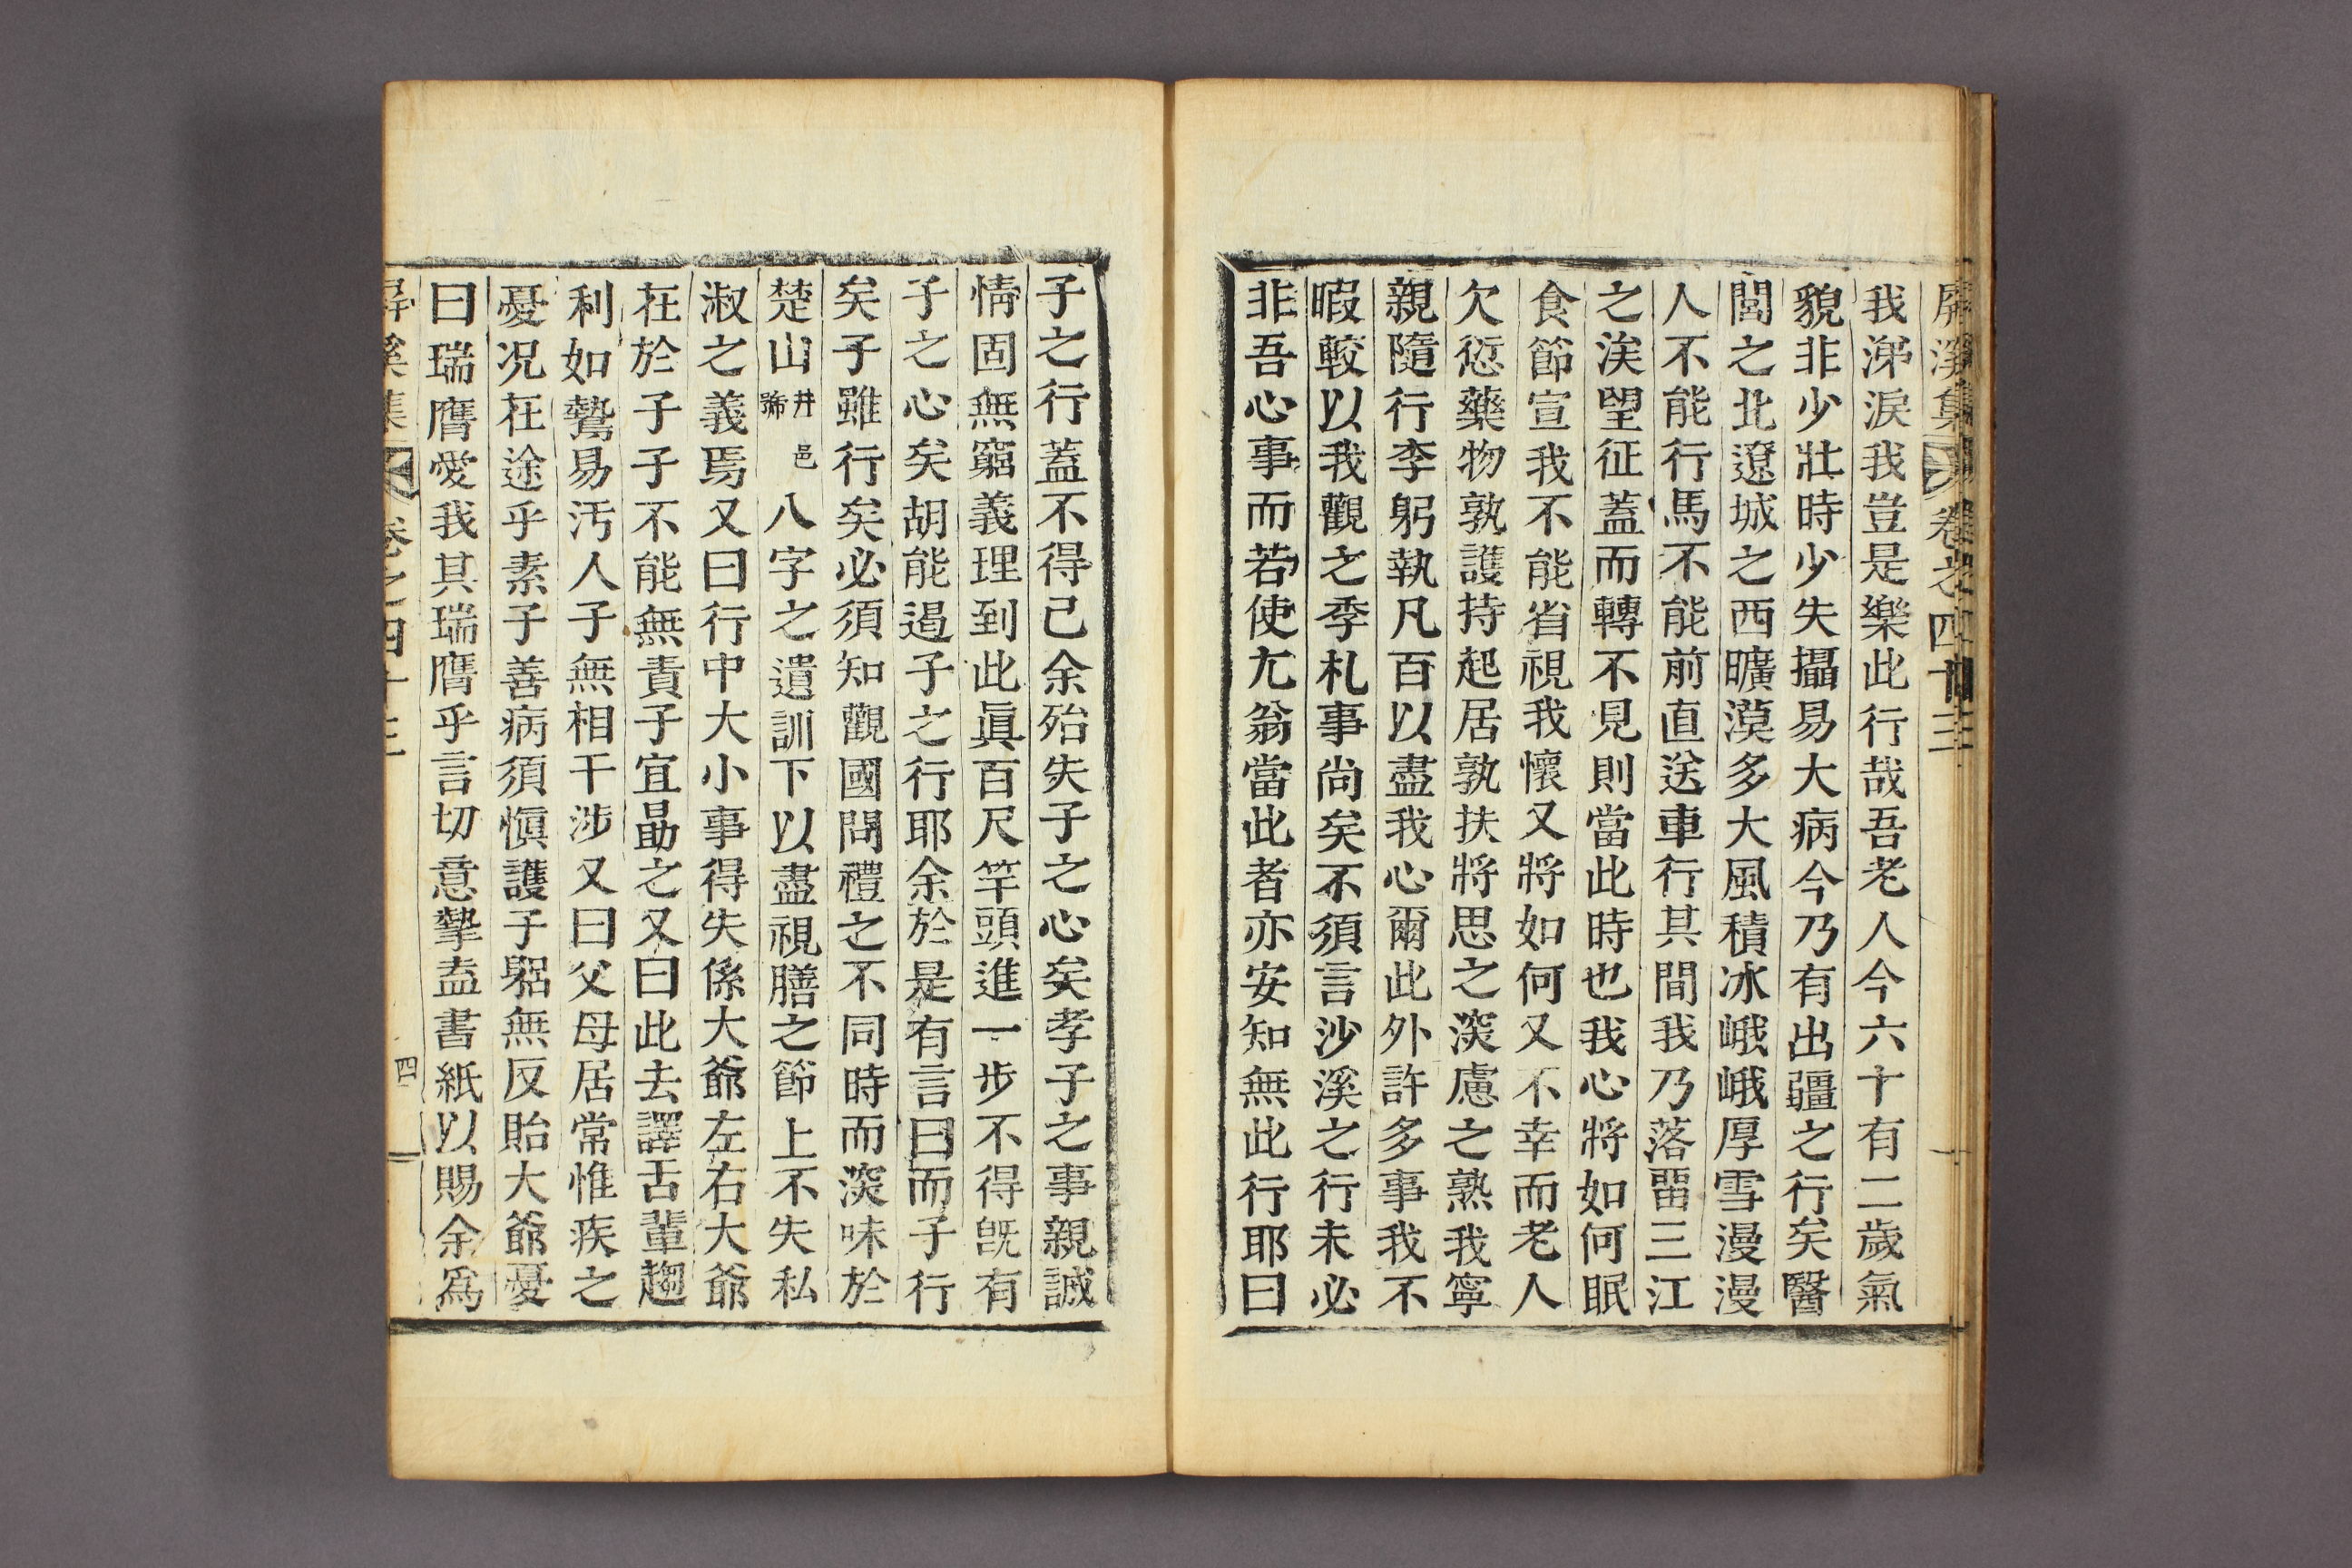 屏溪集 卷之四十三
我涕淚我豈是樂此行哉吾老人今六十有二歲氣
貌非少壯時少失攝易大病今乃有出疆之行矣醫
閭之北遼城之西曠漠多大風積冰峨峨厚雪漫漫
人不能行馬不能前直送車行其間我乃落留三江
之涘望征蓋而轉不見則當此時也我心將如何眠
食節宣我不能省視我懷又將如何又不幸而老人
欠愆藥物孰護持起居孰扶將思之深慮之熟我寧
親隨行李躬執凡百以盡我心爾此外許多事我不
暇較以我觀之季札事尚矣不須言沙溪之行未必
非吾心事而若使尤翁當此者亦安知無此行耶曰
子之行蓋不得已余殆失子之心矣孝子之事親誠
情固無窮義理到此眞百尺竿頭進一步不得旣有
子之心矣胡能遏子之行耶余於是有言曰而子行
矣子雖行矣必須知觀國問禮之不同時而深味於
楚山井邑號八字之遺訓下以盡視膳之節上不失私
淑之義焉又曰行中大小事得失係大爺左右大爺
在於子子不能無責子宜勖之又曰此去譯舌輩趨
利如鶩易汚人子無相干涉又曰父母居常惟疾之
憂况在途乎素子善病須愼護子躬無反貽大爺憂
曰瑞膺愛我其瑞膺乎言切意摯盍書紙以賜余爲
屏溪集 卷之四十三 四